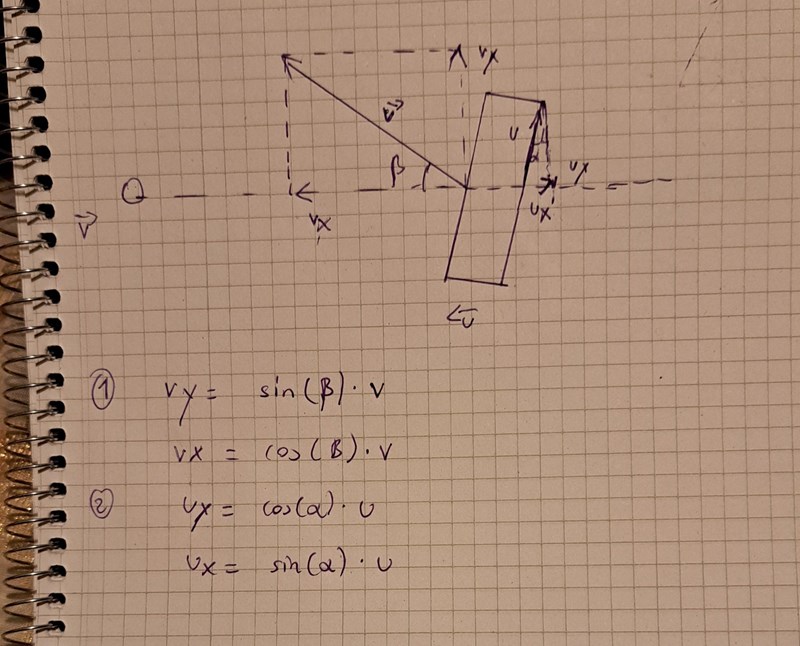 vy
v⃗
u
β
α
uy
vx
ux
v⃗
u⃗
① vy = sin(β) · v
vx = cos(β) · v
② uy = cos(α) · u
ux = sin(α) · u